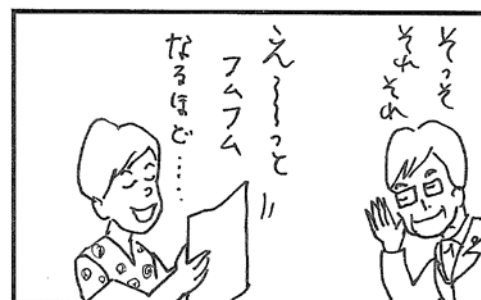 そっそ
それそれ
え〜〜っと
フムフム
なるほど……